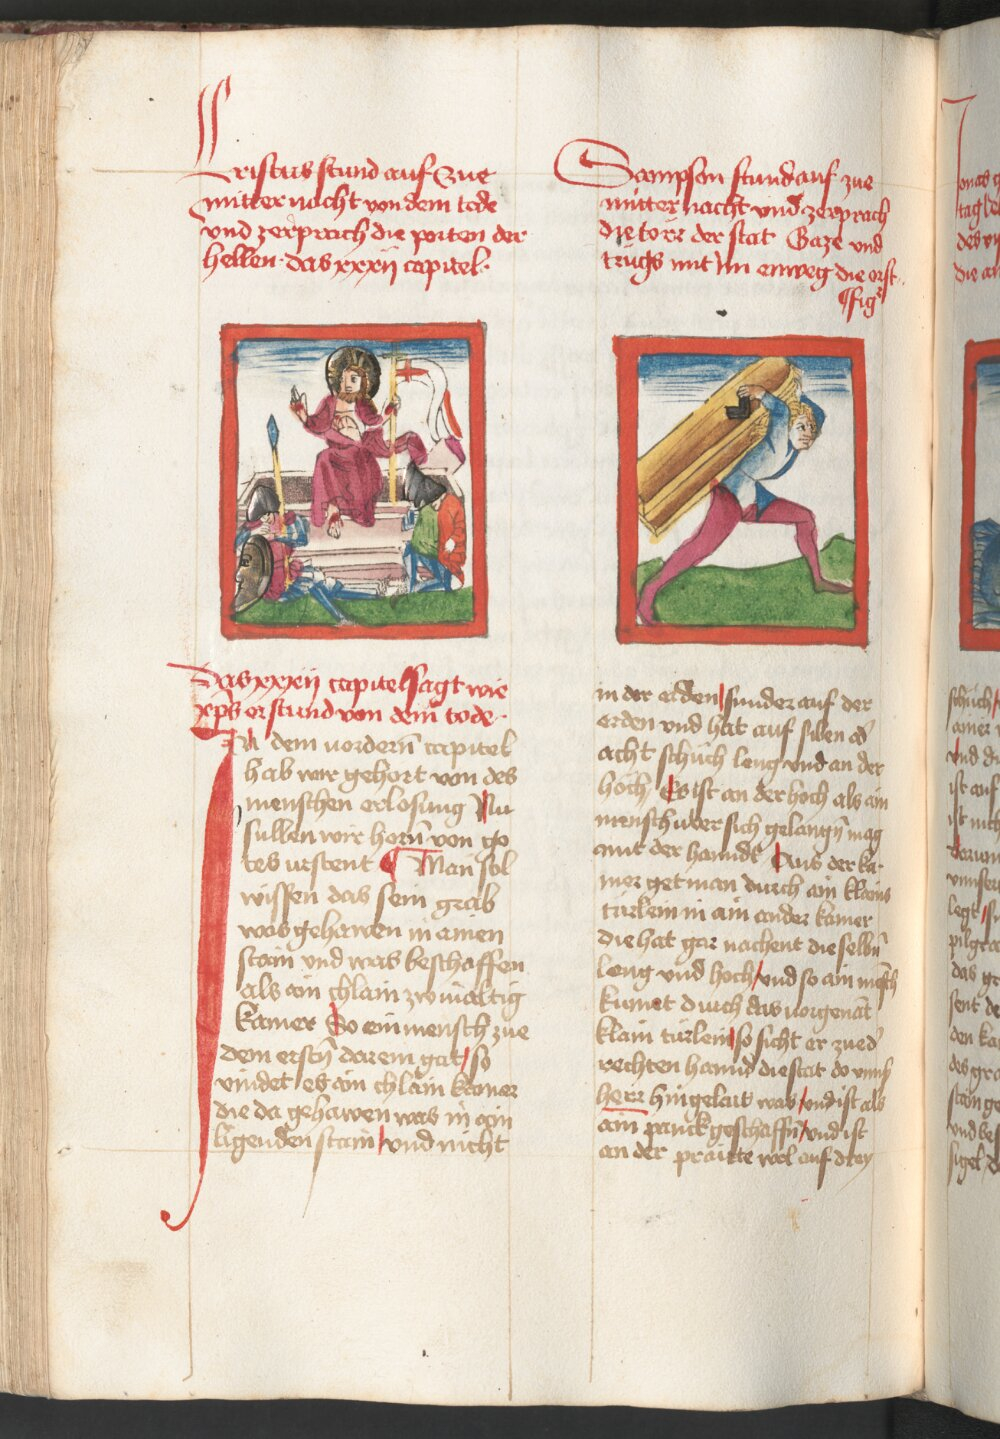 Cristus stund auf zue
mitter nacht von dem tode
und zerprach die porten der
hellen · das xxxij capitel ·
Sampson stund auf zue
mitter nacht und zerprach
die törr der stat Gaze und
trůgs mit im enweg die erst
fig
Das xxxij capitel sagt wie
xps erstund von dem tode ·
In dem vordern capitel
hab wir gehort von des
menschen erlosung Nu
sullen wir horn von go
tes urstent Man sol
wissen das sein grab
was gehawen in ainen
stain und was beschaffen
als ain chlain zwiualtig
kamer So ein mensch zue
dem erstn darein gat / so
vindet es ain chlain kamer
die da gehawen was in ain
ligenden stain / und nicht
in der erden / sunder auf der
erden und hat auf siben od
acht schůch leng und an der
höch Es ist an der hoch als ain
mensch uber sich gelangn mag
mit der hanndt Aus der ka
mer get man durch ain klains
türlein in ain ander kamer
die hat gar nachent die selbn
leng und hoch / und so ain mesch
kumet durch das vorgenant
klain türlein / so sicht er zu d
rechten hannd die stat do unns
herr hingelait was / und ist als
ain panck geschaffn / und ist
an der praitte wol auf drey
ionas
tag
des